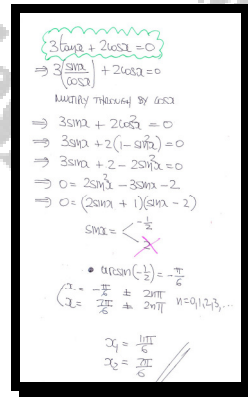 3tanx + 2cosx = 0
⇒ 3(sinx/cosx) + 2cosx = 0
MULTIPLY THROUGH BY cosx
⇒ 3sinx + 2cos²x = 0
⇒ 3sinx + 2(1 - sin²x) = 0
⇒ 3sinx + 2 - 2sin²x = 0
⇒ 0 = 2sin²x - 3sinx - 2
⇒ 0 = (2sinx + 1)(sinx - 2)
sinx = < -1/2
2
• arcsin(-1/2) = -π/6
( x = -π/6 ± 2nπ
( x = 7π/6 ± 2nπ n=0,1,2,3,...
x₁ = 11π/6
x₂ = 7π/6